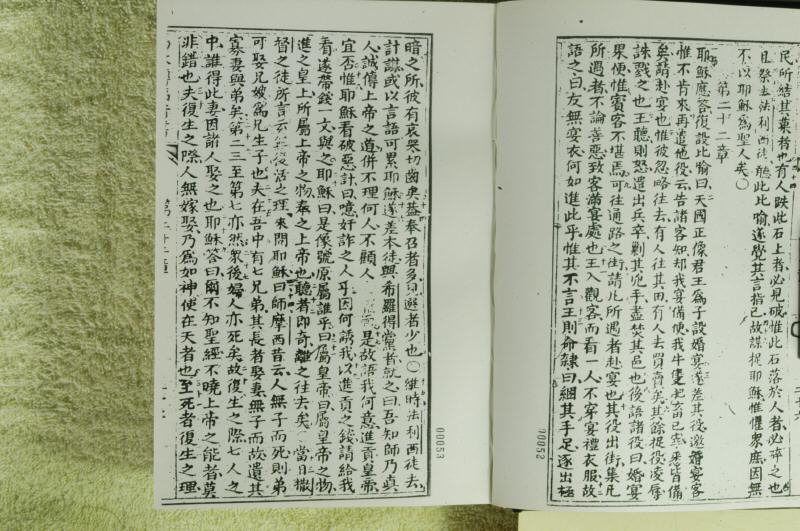 民所結其菓者也有人跌此石上者必見破惟此石落於人者必碎之也
且祭者法利西徒聽此比喻遂覺其言指己故謀捉耶穌惟懼眾庶因無
不以耶穌為聖人矣〇
第二十二章
耶穌應答復設比喻曰天國正像君王為子設婚宴遂差其役邀婚宴客
惟不肯來再遣他役云告諸客知却我宴備便我牛隻肥畜已宰悉皆備
矣請赴宴也惟彼忽略徃去有人徃其田有人去買賣矣其餘捉役凌辱
誅戮之也王聽則怒遣出兵卒剿其兇手盡焚其邑也後語諸役曰婚宴
果便惟賓客不堪焉可徃通路之街請此所遇者赴宴也其役出街集凡
所遇者不論善惡致客滿宴處也王入觀客而看一人不穿宴禮衣服故
語之曰友無宴衣何如進此乎惟其不言王則命隸曰綑其手足逐出極
00052
暗之所彼有哀哭切齒矣蓋奉召者多見選者少也〇維時法利西徒去
計謀或以言語可累耶穌遂差本徒與希羅得黨者就之曰吾知師乃真
人誠傳上帝之道併不理何人不顧人是故語我何意進貢皇帝
宜否惟耶穌看破惡計曰噫奸詐之人乎因何誘我以進貢之錢請給我
看遂帶錢一文與之耶穌曰是像號原屬誰乎曰屬皇帝曰屬皇帝之物
進之皇上所屬上帝之物奉之上帝也聽者即奇離之徃去矣〇當日撒
督之徒所言云無復活之理來問耶穌曰師摩西昔云人無子而死則弟
可娶兄嫂為兄生子也夫在吾中有七兄弟其長者娶妻無子而故遺其
寡妻與弟矣第二三至第七亦然眾後婦人亦死矣故復生之際七人之
中誰得此妻因諸人娶之也耶穌答曰爾不知聖經不曉上帝之能者莫
非錯也夫復生之際人無嫁娶乃為如神使在天者也至死者復生之理
00053